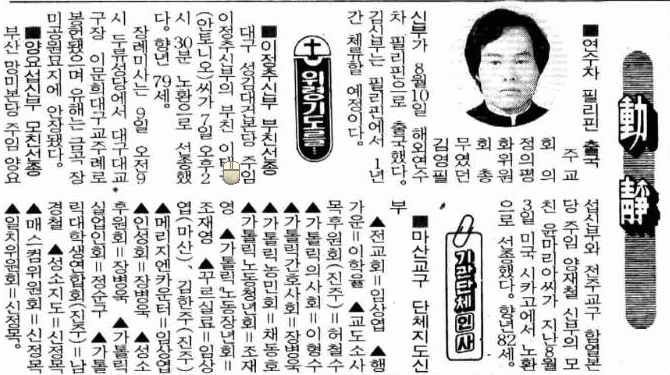 動靜
■연수차 필리핀 출국
주교
회의
정의평
화위원
회 총
무였던
김영필
신부가 8월10일 해외연수
차 필리핀으로 출국했다.
김신부는 필리핀에서 1년
간 체류할 예정이다.
위령기도를…
■이정추신부 부친선종
대구 성김대건본당 주임
이정추신부의 부친
(안토니오)씨가 7일 오후2
시 30분 노환으로 선종했
다. 향년 79세.
장례미사는 9일 오전9
시 두류성당에서 대구대교
구장 이문희대주교주례로
봉헌됐으며 유해는 금곡 장
미공원묘지에 안장됐다.
■양요섭신부 모친선종
부산 망미본당 주임 양요
섭신부와 전주교구 함열본
당 주임 양재철 신부의 모
친 윤마리아씨가 지난8월
3일 미국 시카고에서 노환
으로 선종했다. 향년82세.
기관단체인사
■마산교구 단체지도신
부
▲전교회=임상엽 ▲행
가운=이학율 ▲교도소사
목후원회(진주)=허철수
▲가톨릭의사회=이형수
▲가톨릭간호사회=장병욱
▲가톨릭농민회=채동호
▲가톨릭노동청년회=조재
영 ▲가톨릭노동장년회=
조재영 ▲꾸르실료=임상
엽(마산), 김한주(진주)
▲메리지엔카운터=임상엽
▲인성회=장병욱 ▲성소
후원회=장병욱 ▲가톨릭
실업인회=정순구 ▲가톨
릭대학생연합회(진주)=남
경철 ▲성소지도=신정목
▲매스컴위원회=신정목
▲일치위원회=신정목.